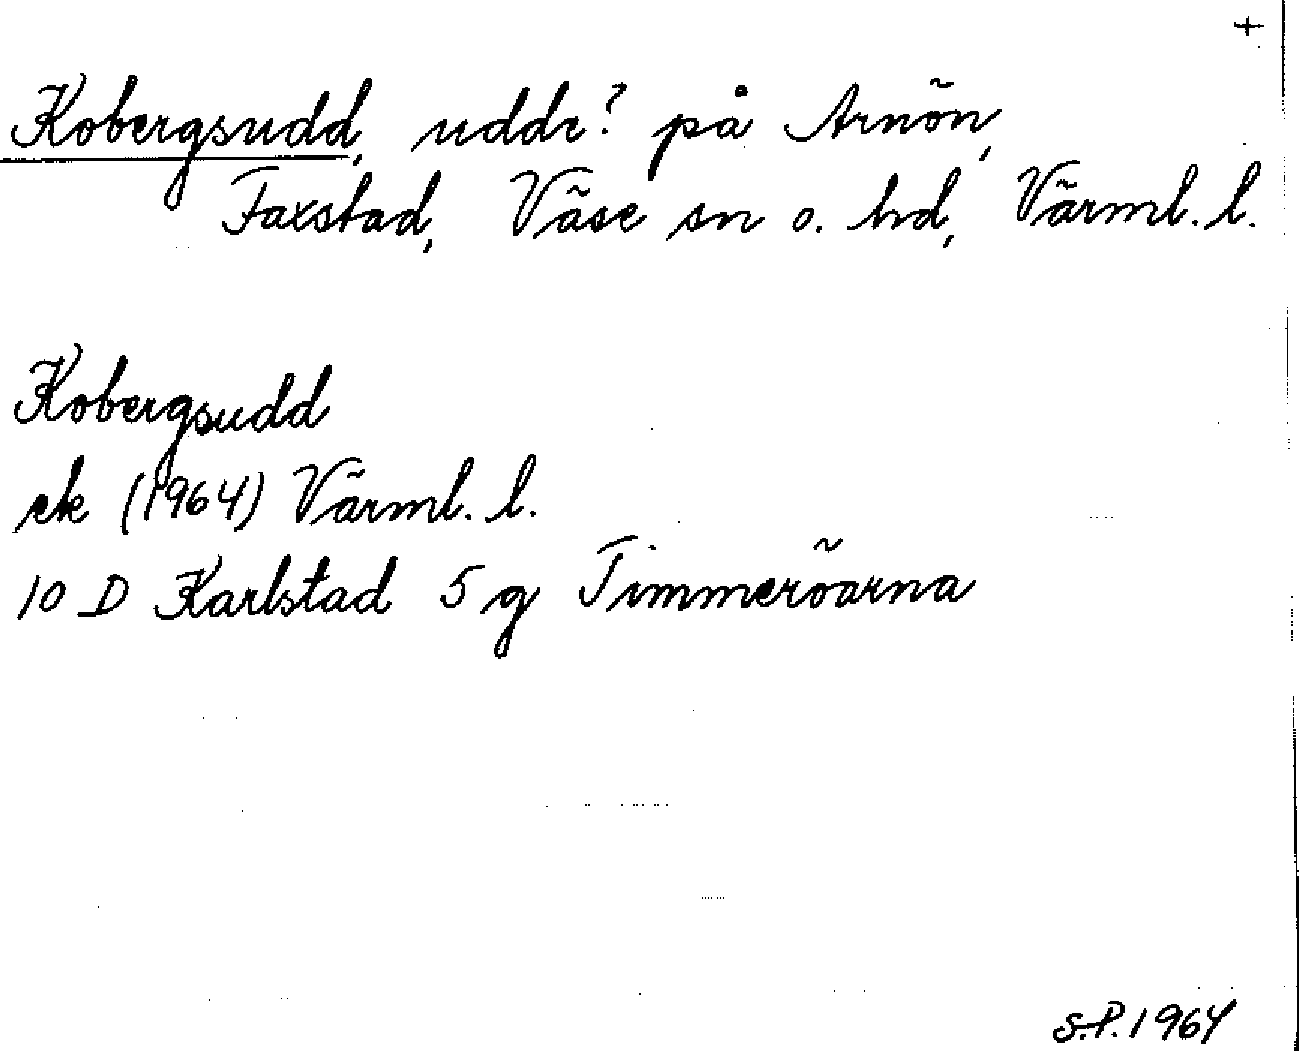 +
Kobergsudd, uddr? på Arnön,
Faxstad, Väse sn o. hd, Värml. l.
Kobergsudd
ek (1964) Värml. l.
10 D Karlstad 5 g Timmeröarna
S.P. 1964